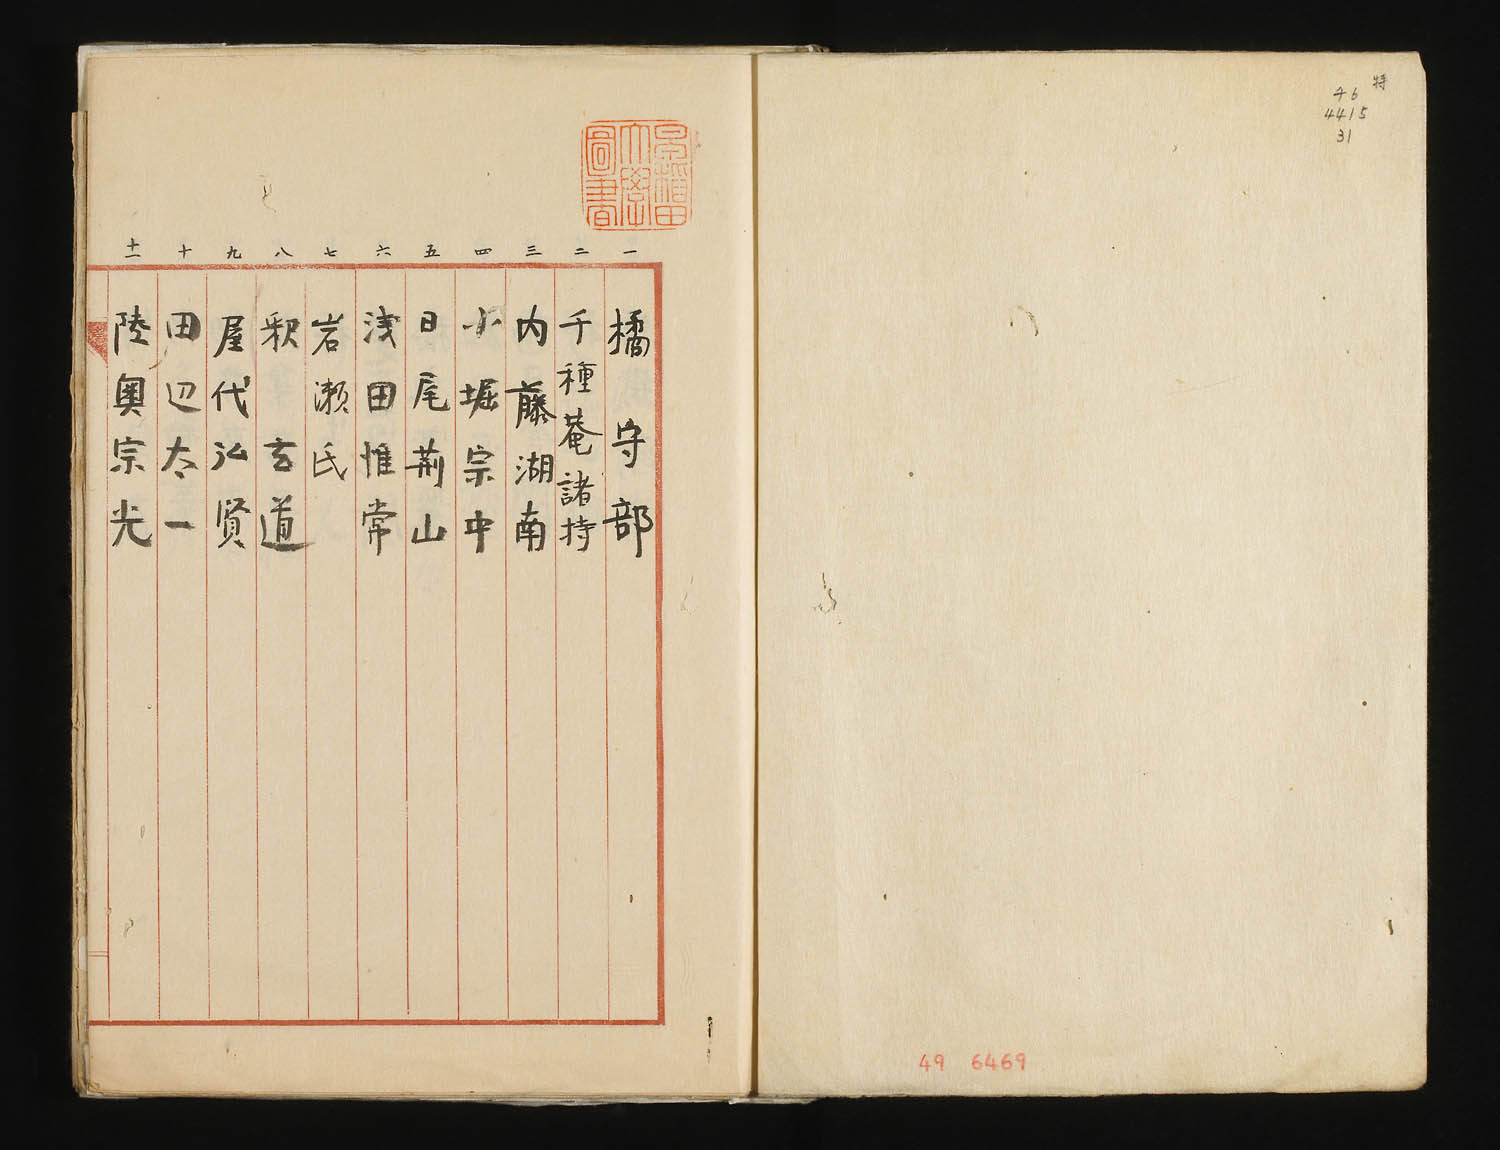 特
イ6
4415
31
49 6469
早稲田
大学
図書
一 橘守部
二 千種菴諸持
三 内藤湖南
四 小堀宗中
五 日尾荊山
六 浅田惟常
七 岩瀬氏
八 釈玄道
九 屋代弘賢
十 田辺太一
十一 陸奥宗光